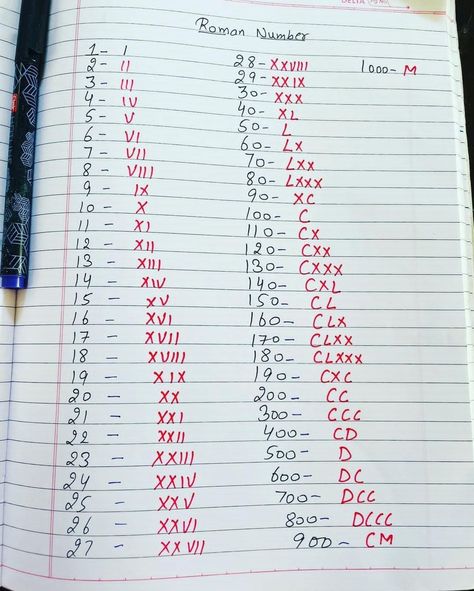 Roman Number
1 - I
2 - II
3 - III
4 - IV
5 - V
6 - VI
7 - VII
8 - VIII
9 - IX
10 - X
11 - XI
12 - XII
13 - XIII
14 - XIV
15 - XV
16 - XVI
17 - XVII
18 - XVIII
19 - XIX
20 - XX
21 - XXI
22 - XXII
23 - XXIII
24 - XXIV
25 - XXV
26 - XXVI
27 - XXVII
28 - XXVIII
29 - XXIX
30 - XXX
40 - XL
50 - L
60 - LX
70 - LXX
80 - LXXX
90 - XC
100 - C
110 - CX
120 - CXX
130 - CXXX
140 - CXL
150 - CL
160 - CLX
170 - CLXX
180 - CLXXX
190 - CXC
200 - CC
300 - CCC
400 - CD
500 - D
600 - DC
700 - DCC
800 - DCCC
900 - CM
1000 - M